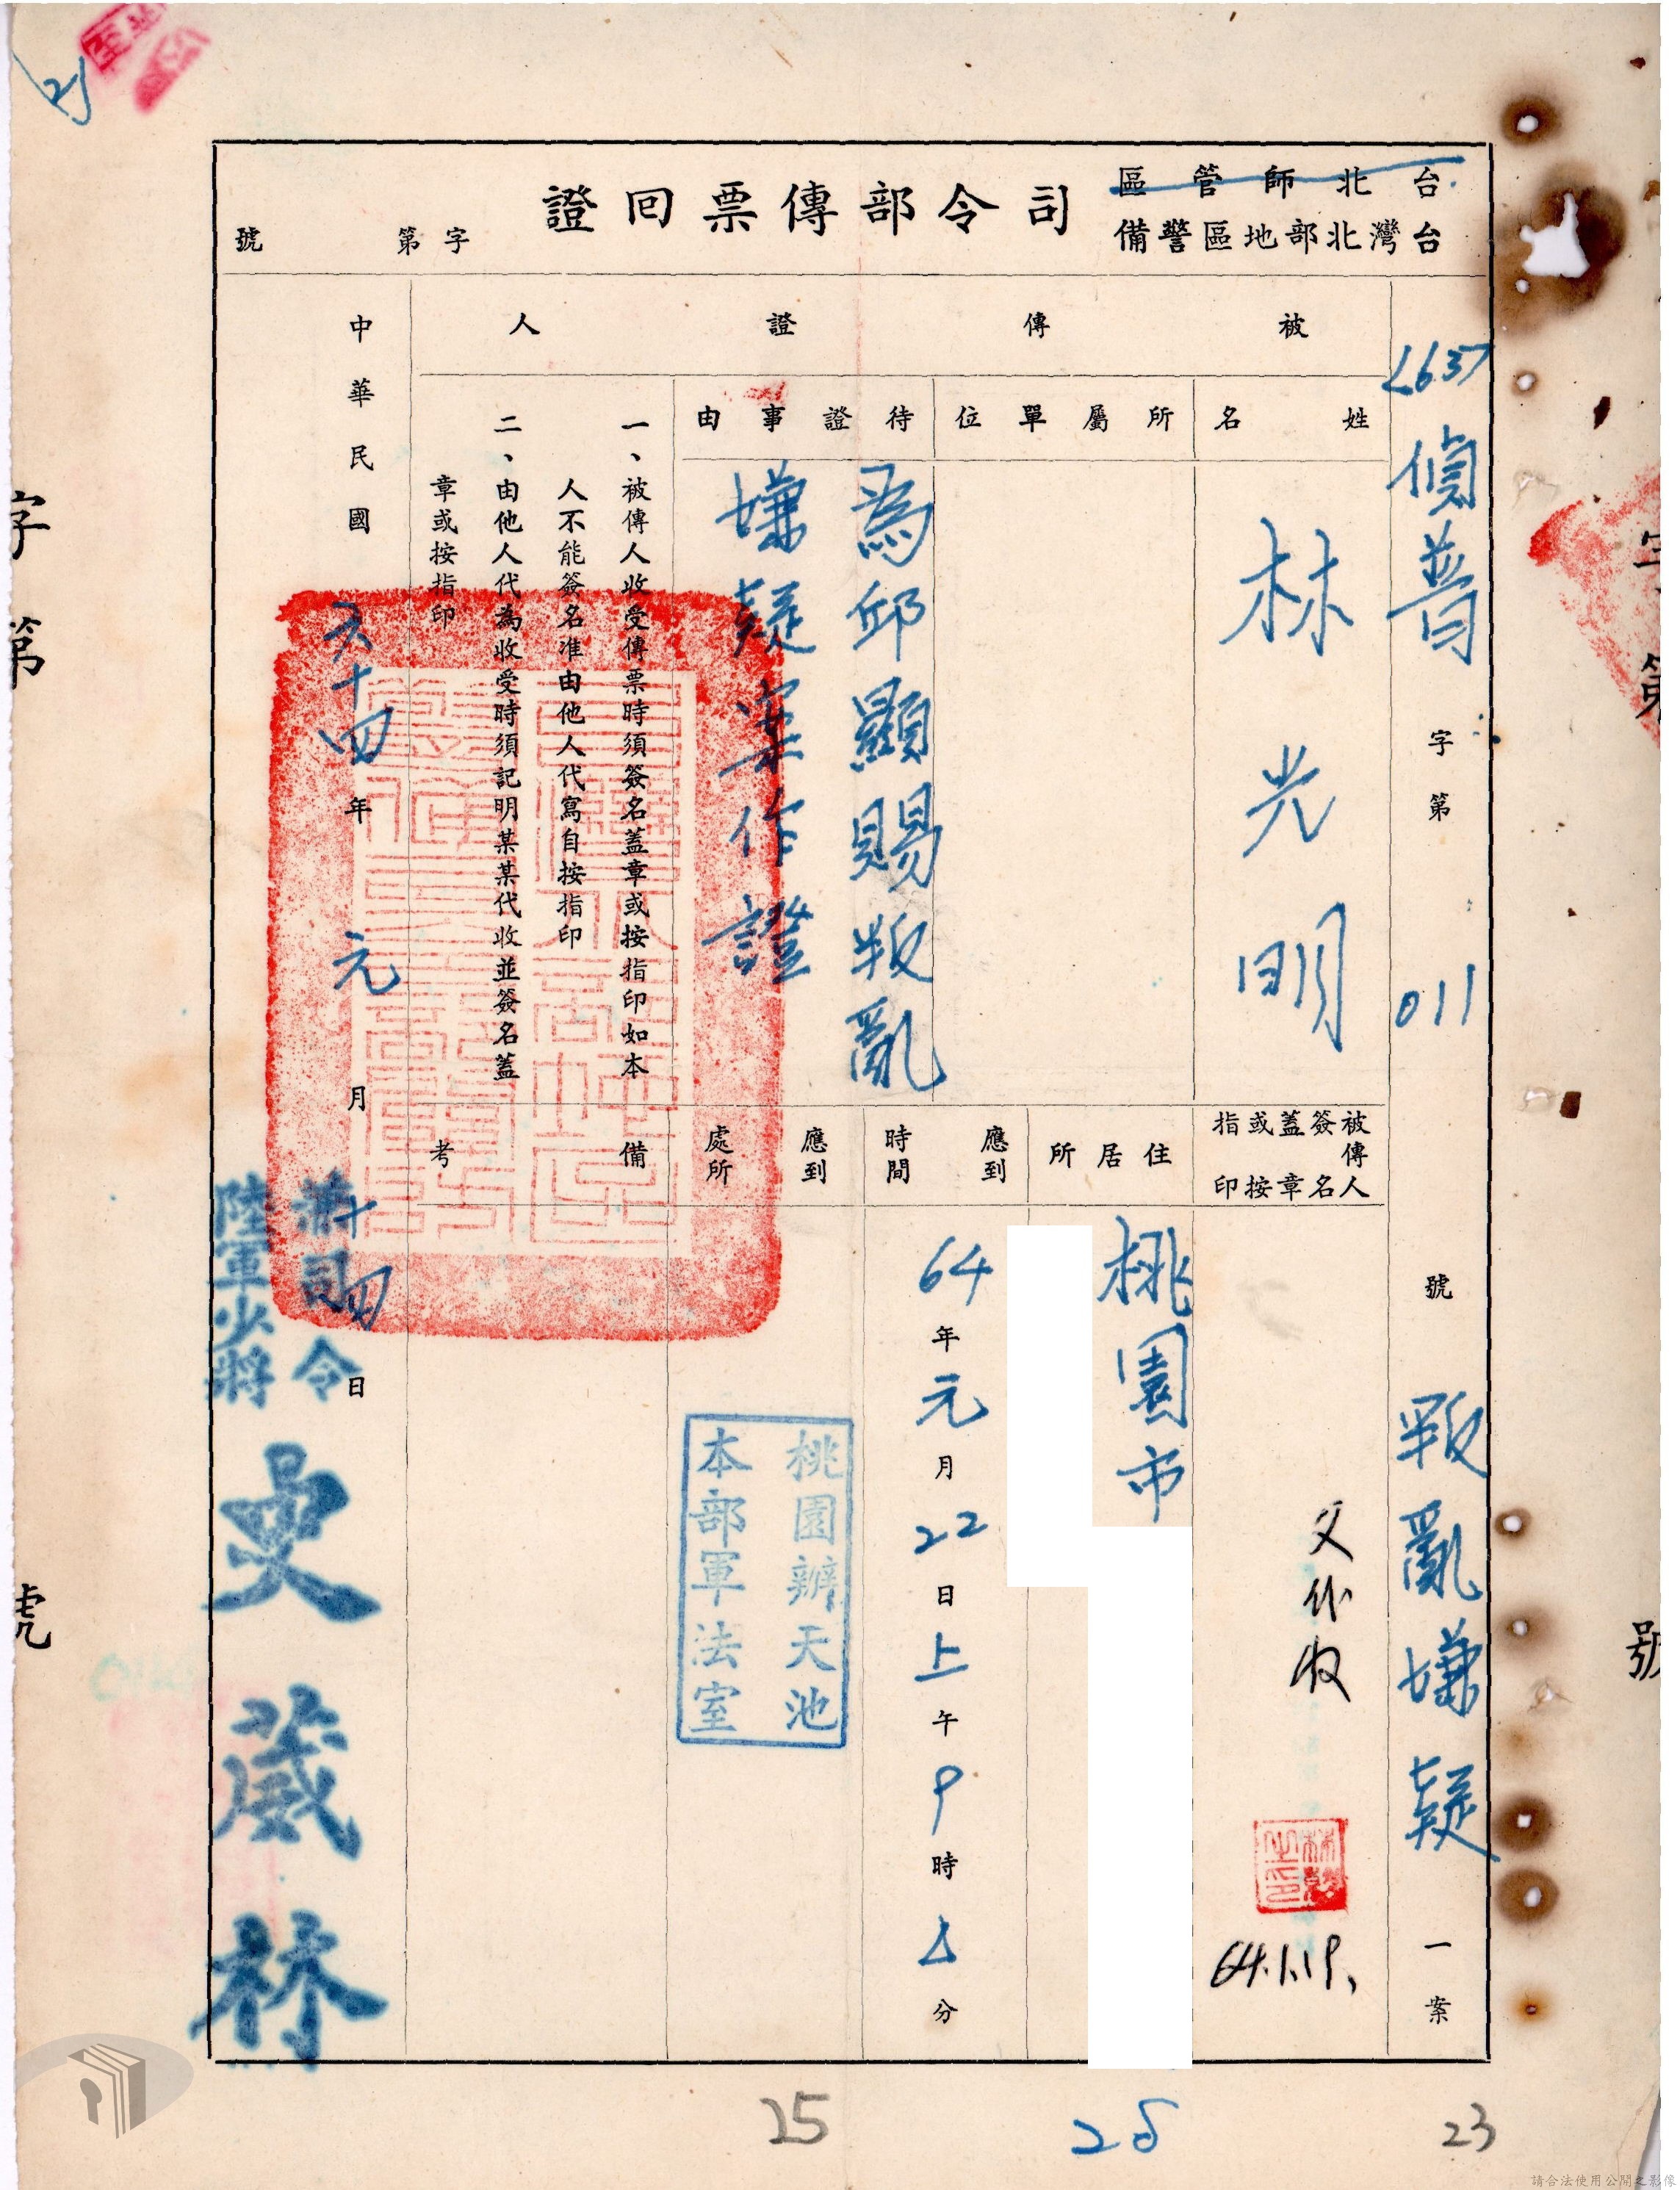 台北師管區
台灣北部地區警備
司令部傳票回證
字第 號
2637
偵普字第011號叛亂嫌疑一案
被傳證人
姓名
林光明
被傳人簽名蓋章或按指印
父代收
64.1.19.
所屬單位
住居所
桃園市
待證事由
為邱顯賜叛亂
嫌疑案作證
應到時間
64年元月22日上午9時
分
應到處所
桃園辦天池
本部軍法室
一、被傳人收受傳票時須簽名蓋章或按指印如本
人不能簽名准由他人代寫自按指印
二、由他人代為收受時須記明某某代收並簽名蓋
章或按指印
備考
中華民國六十四年元月十四日
兼司令
陸軍少將
史葳林
字第 號
字第 號
21
25
28
23
請合法使用公開之影像